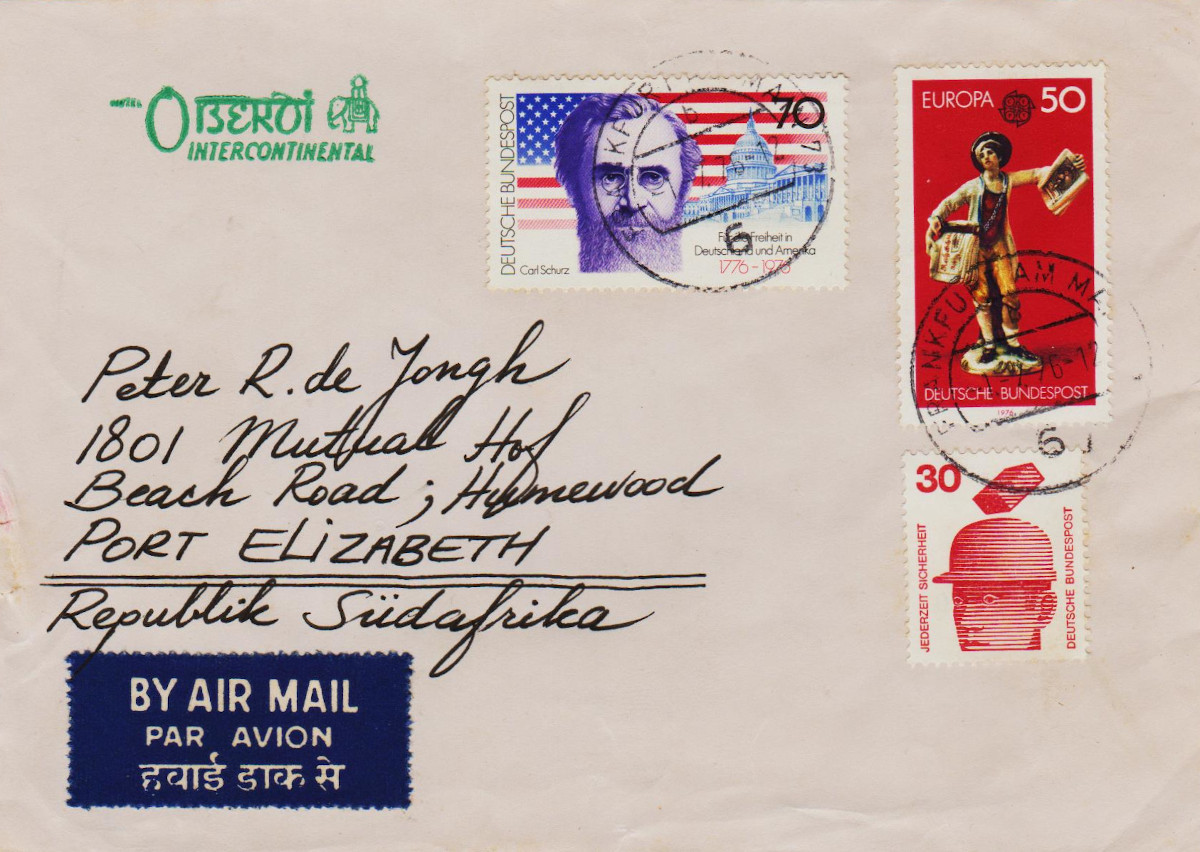 OBEROI
INTERCONTINENTAL
DEUTSCHE BUNDESPOST
70
Carl Schurz
Für die Freiheit in
Deutschland und Amerika
1776–1976
FRANKFURT AM MAIN
6
EUROPA 50
DEUTSCHE BUNDESPOST
1976
FRANKFURT AM MA
76-12
6
30
JEDERZEIT SICHERHEIT
DEUTSCHE BUNDESPOST
Peter R. de Jongh
1801 Mutual Hof
Beach Road; Humewood
PORT ELIZABETH
Republik Südafrika
BY AIR MAIL
PAR AVION
हवाई डाक से